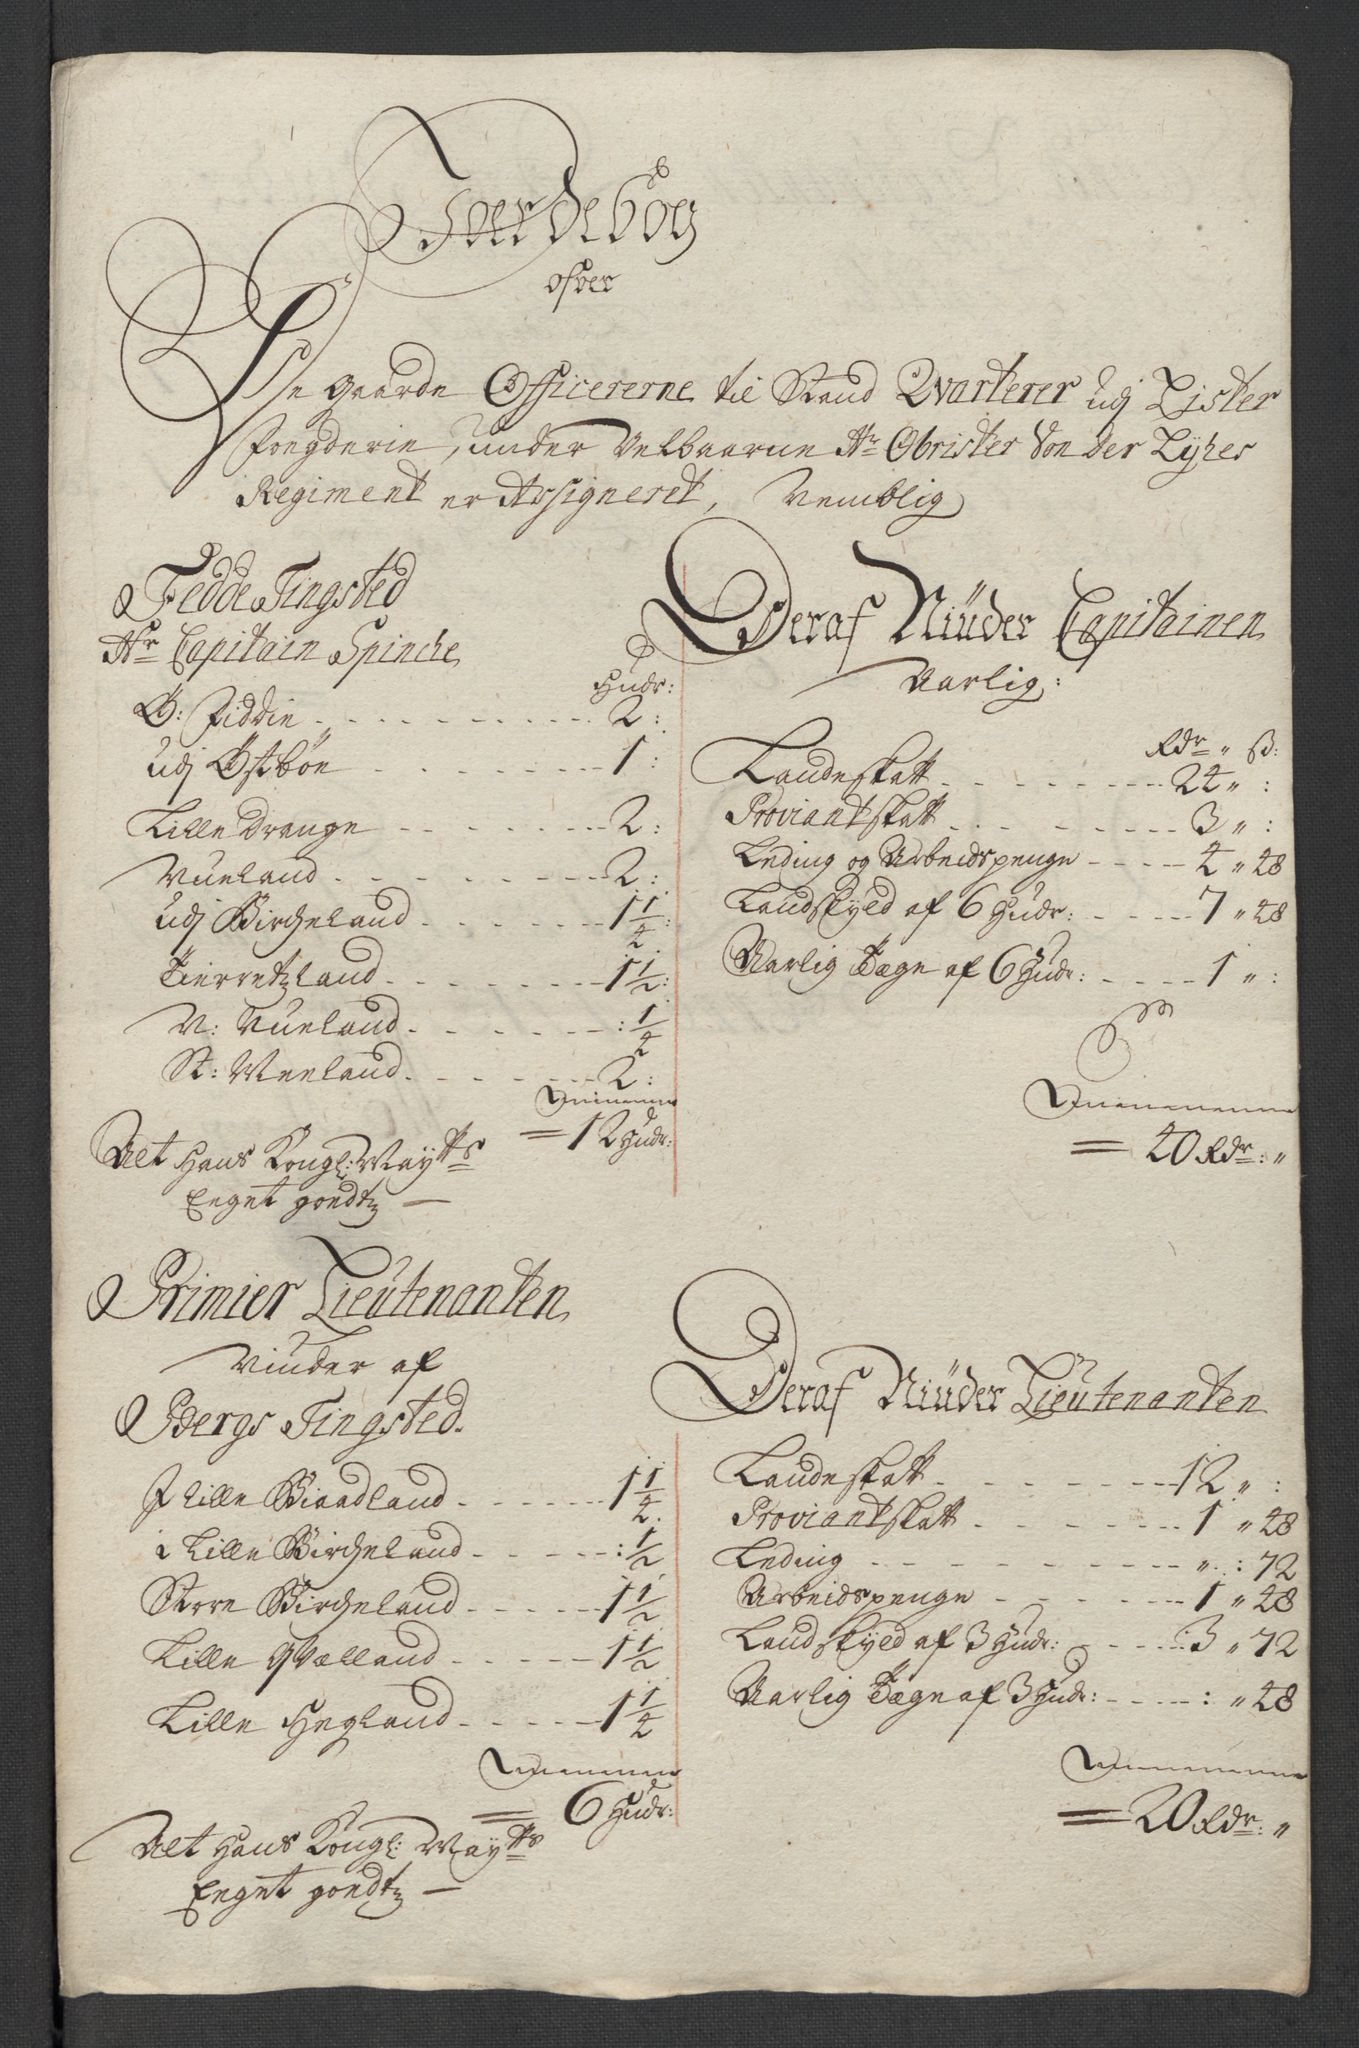 Jordebog
ofver
De Gaarde Officererne til Stand Qvarterer udj Lister
Fougderie, under Velbaarne Hr Obrister Von der Lÿhes
Regiment er Assigneret, Nemblig
Fedde Tingsted
Hr Capitain Spinche
Hudr:
Ø: Fiddie 2:
udj Østbøe 1:
Lille Drange 2:
Vueland 2:
udj Bircheland 1 1/4:
Tierretzland 1 1/2:
N: Vueland : 1/4
St: Vueland 2:
Summa
= 12 Hudr:
Alt Hans Kongl: Maytts
Eaget goedtz —
Deraf Niüder Capitainen
Aarlig:
Rdr „ ß:
Landeskatt 24 „ :
Proviantskatt 3 „ :
Leding og Arbeidspenge 4 „ 48
Landskÿld af 6 Hudr: 7 „ 48
Aarlig Tægn af 6 Hudr: 1 „ :
Summa
= 40 Rdr: „
Primier Lieutenanten
Niuder af
Bergs Tingsted
J Lille Biaadland 1 1/4
i Lille Birchelaud : 1/2
Store Birchelaud 1 1/2
Lille Qvælland 1 1/2
Lille Hegland 1 1/4
Summa
= 6 Hudr:
Alt Hans Kongl: Maytts
Eeget goedtz —
Deraf Niüder Lieutenanten
Landeskatt 12 „ :
Proviantskatt 1 „ 48
Leding „ : 72
Arbeidspenge 1 „ 48
Landskÿld af 3 Hudr: 3 „ 72
Aarlig Tægn af 3 Hudr: : „ 48
Summa
= 20 Rdr: „